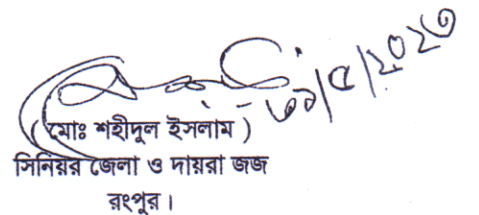 ৩১/৫/২০২৩
( মোঃ শহীদুল ইসলাম )
সিনিয়র জেলা ও দায়রা জজ
রংপুর।